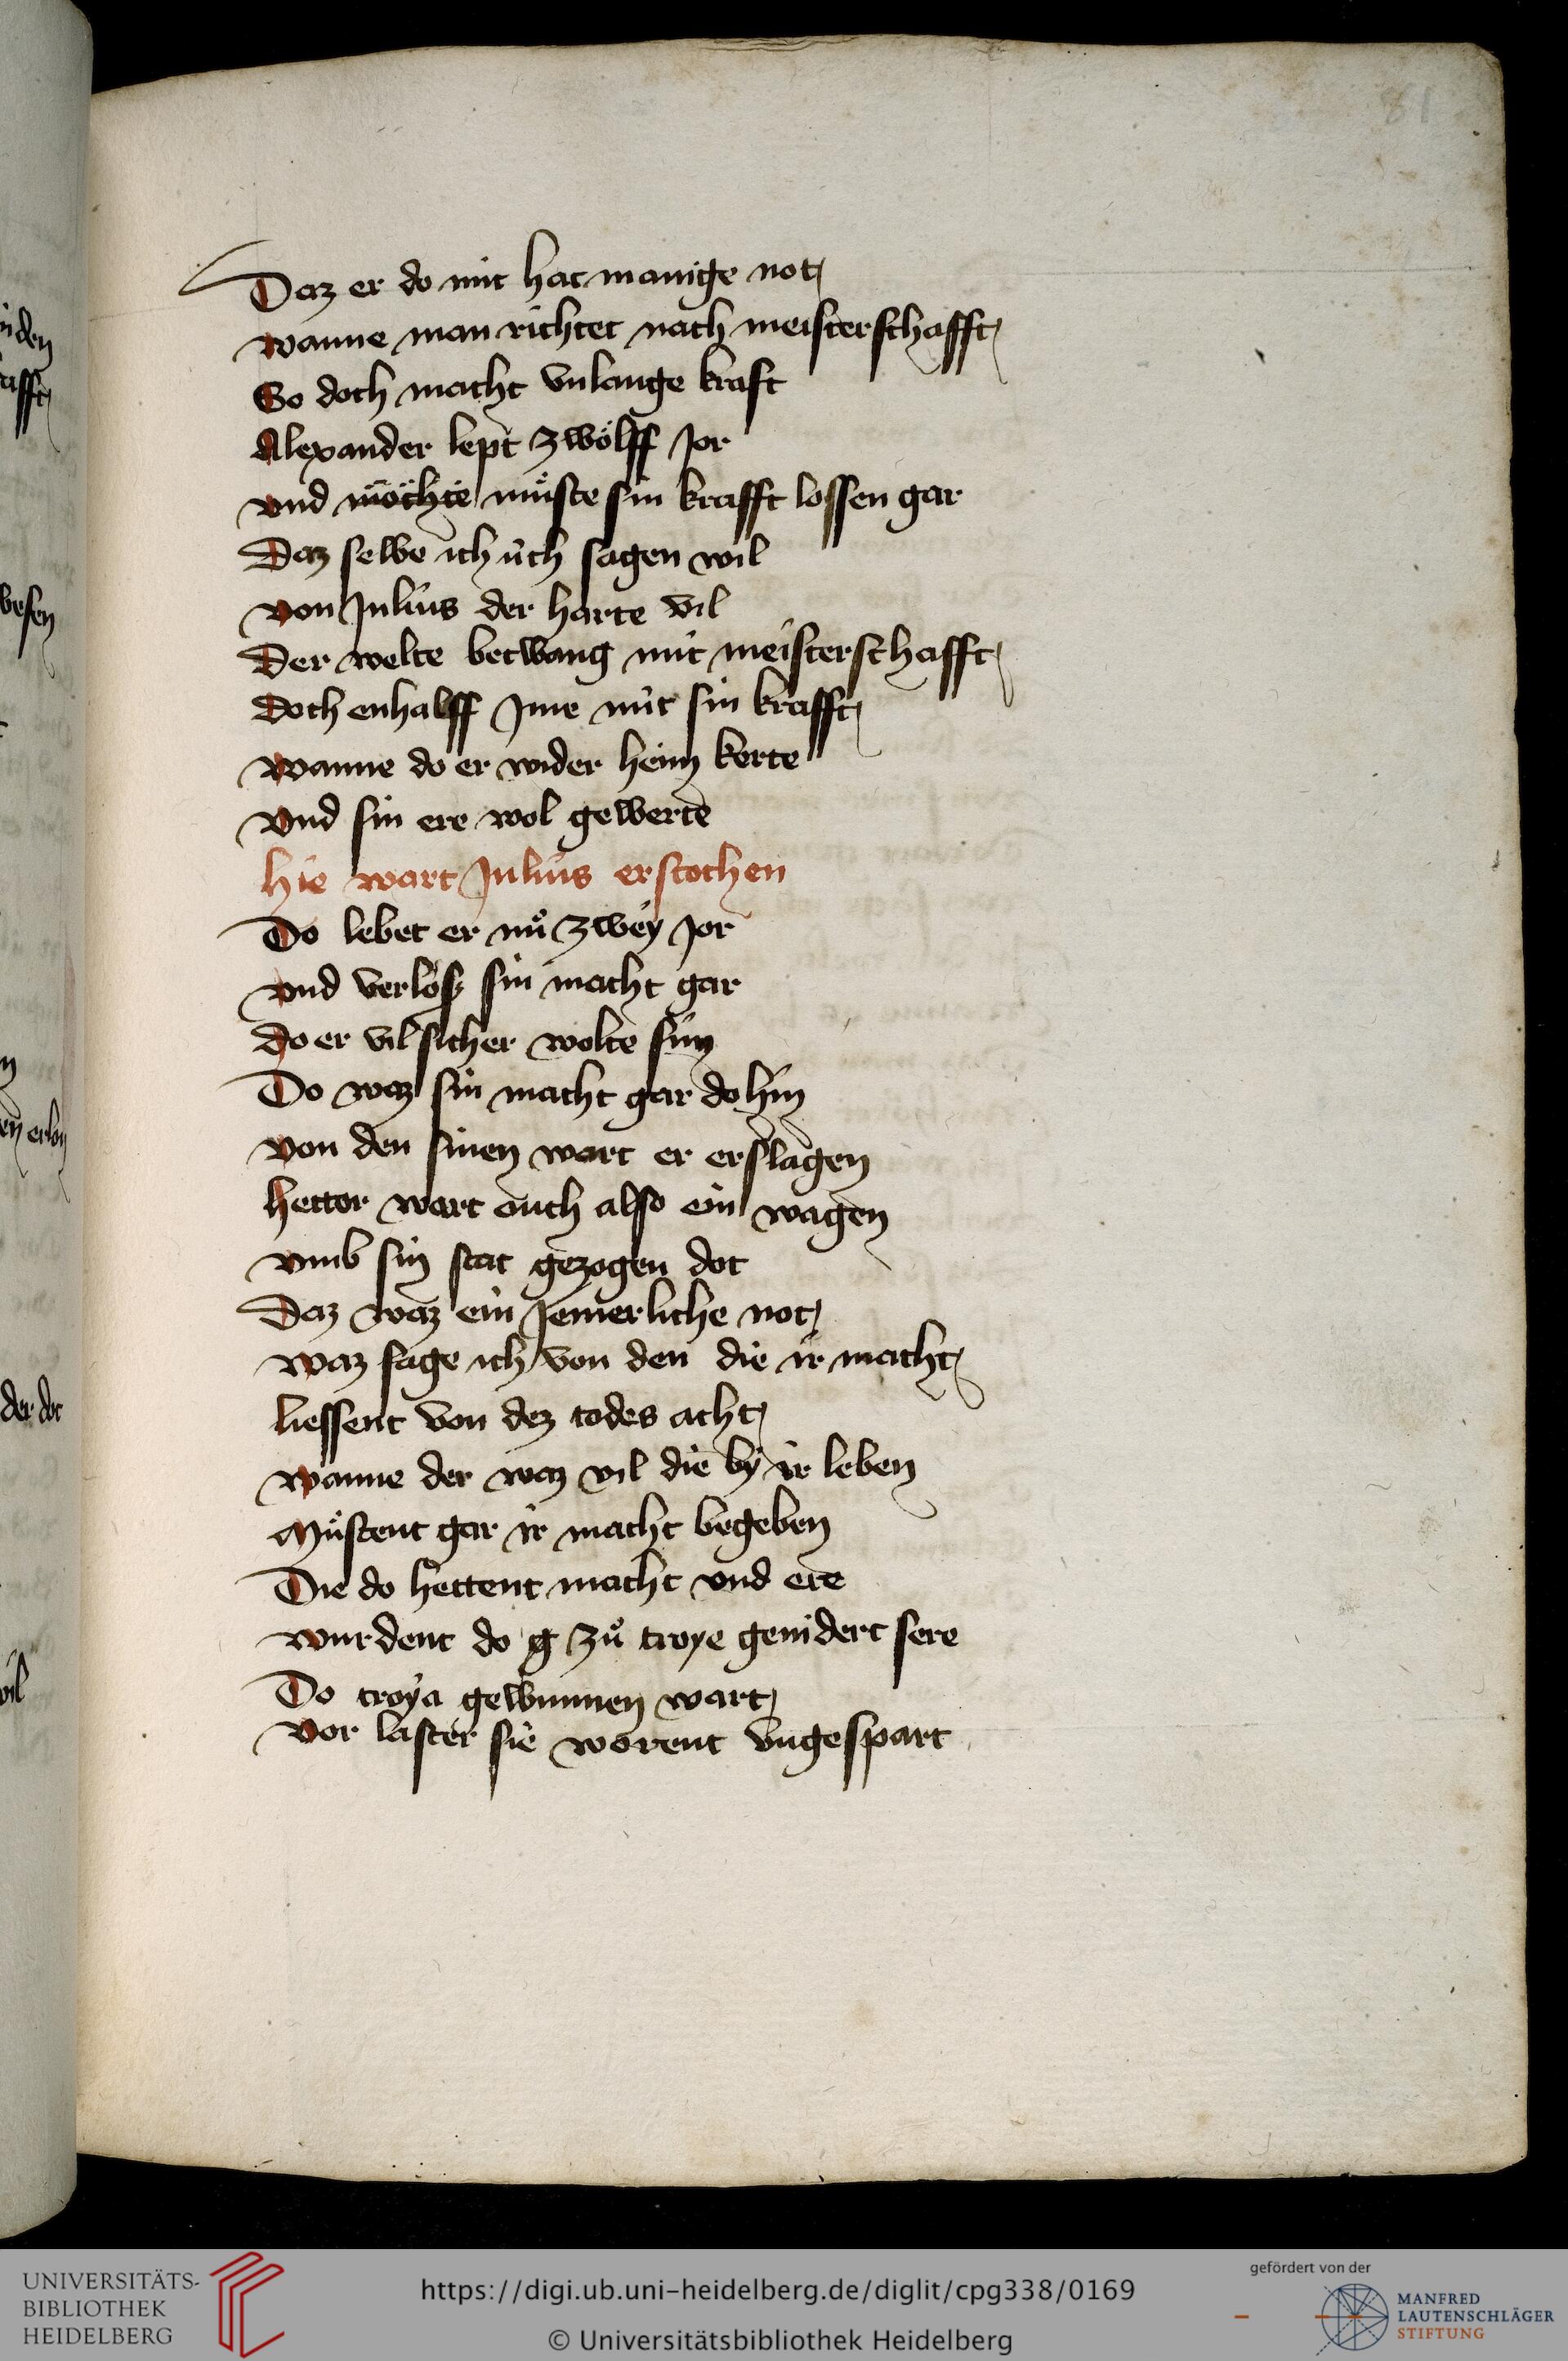 81
Daz er do mit hat manige not
wanne man richtet nach meisterschafft
So doch macht vnlange kraft
Alexander lept zwölff Jor
vnd möchte müste sin krafft lossen gar
Daz selbe ich üch sagen wil
von Julius der harte vil
Der welte betwang mit meisterschafft
Doch enhalff Jme nüt sin krafft
wanne do er wider heim kerte
vnd sin ere wol gewerte
hie wart Julius erstochen
Do lebet er nuͦ zwey Jor
vnd verlosz sin macht gar
do er vil sicher wolte sin
Do waz sin macht gar do hin
von den sinen wart er erslagen
hector wart ouch also ein wagen
vmb sin stat gezogen dot
Daz waz ein Jemerliche not
waz sage ich von den die ir macht
liessent von dez todes acht
wanne der waz vil die by ir leben
Muͦstent gar ir macht begeben
Die do hettent macht vnd ere
wurdent do g zuͦ troye genidert sere
Do troya gewunnen wart
vor laster sie worent vngespart
inden
afft
wesen
en erlon
der dot
vil
UNIVERSITÄTS-
BIBLIOTHEK
HEIDELBERG
https://digi.ub.uni-heidelberg.de/diglit/cpg338/0169
© Universitätsbibliothek Heidelberg
gefördert von der
MANFRED
LAUTENSCHLÄGER
STIFTUNG